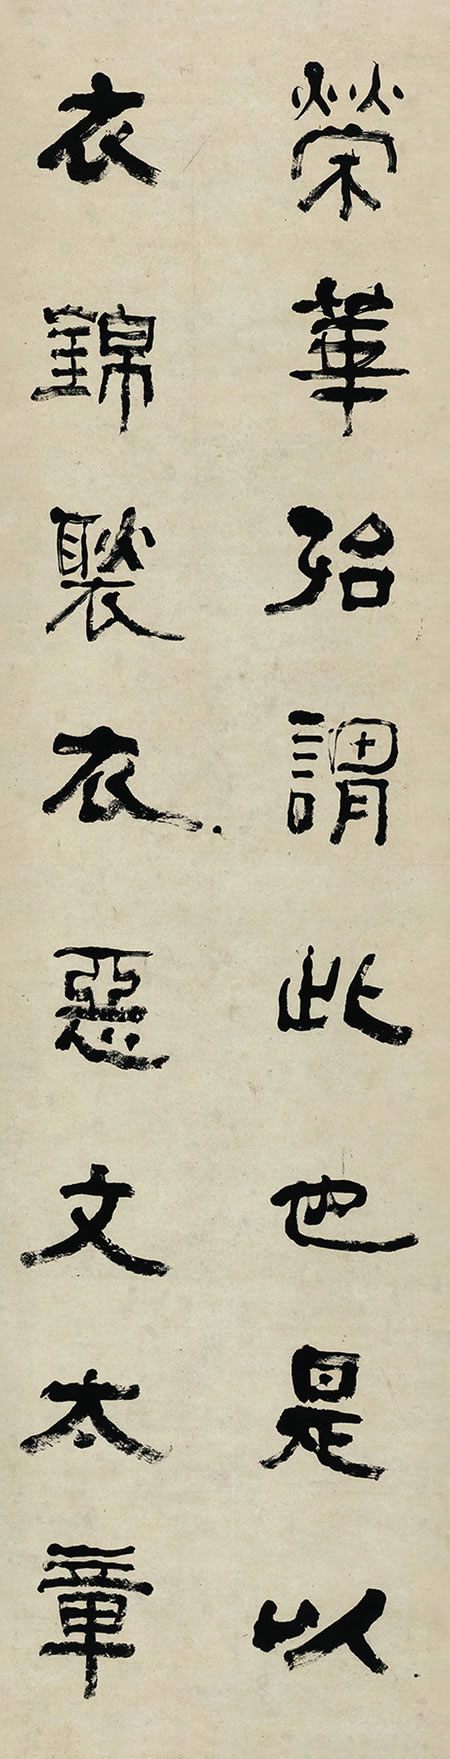 榮華殆謂此也是以
衣錦褧衣惡文太章